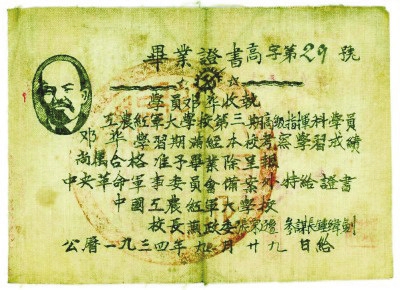 畢業證書高字第29號
學員邓华收執
工農紅軍大學校第三期高級指揮科學員
邓华學習期滿經本校考察學習成績
尚屬合格准予畢業除報
中央革命軍事委員會備案外特給證書
中國工農紅軍大學校
校長兼政委張宗遜 參謀長
公曆一九三四年九月廿九日給